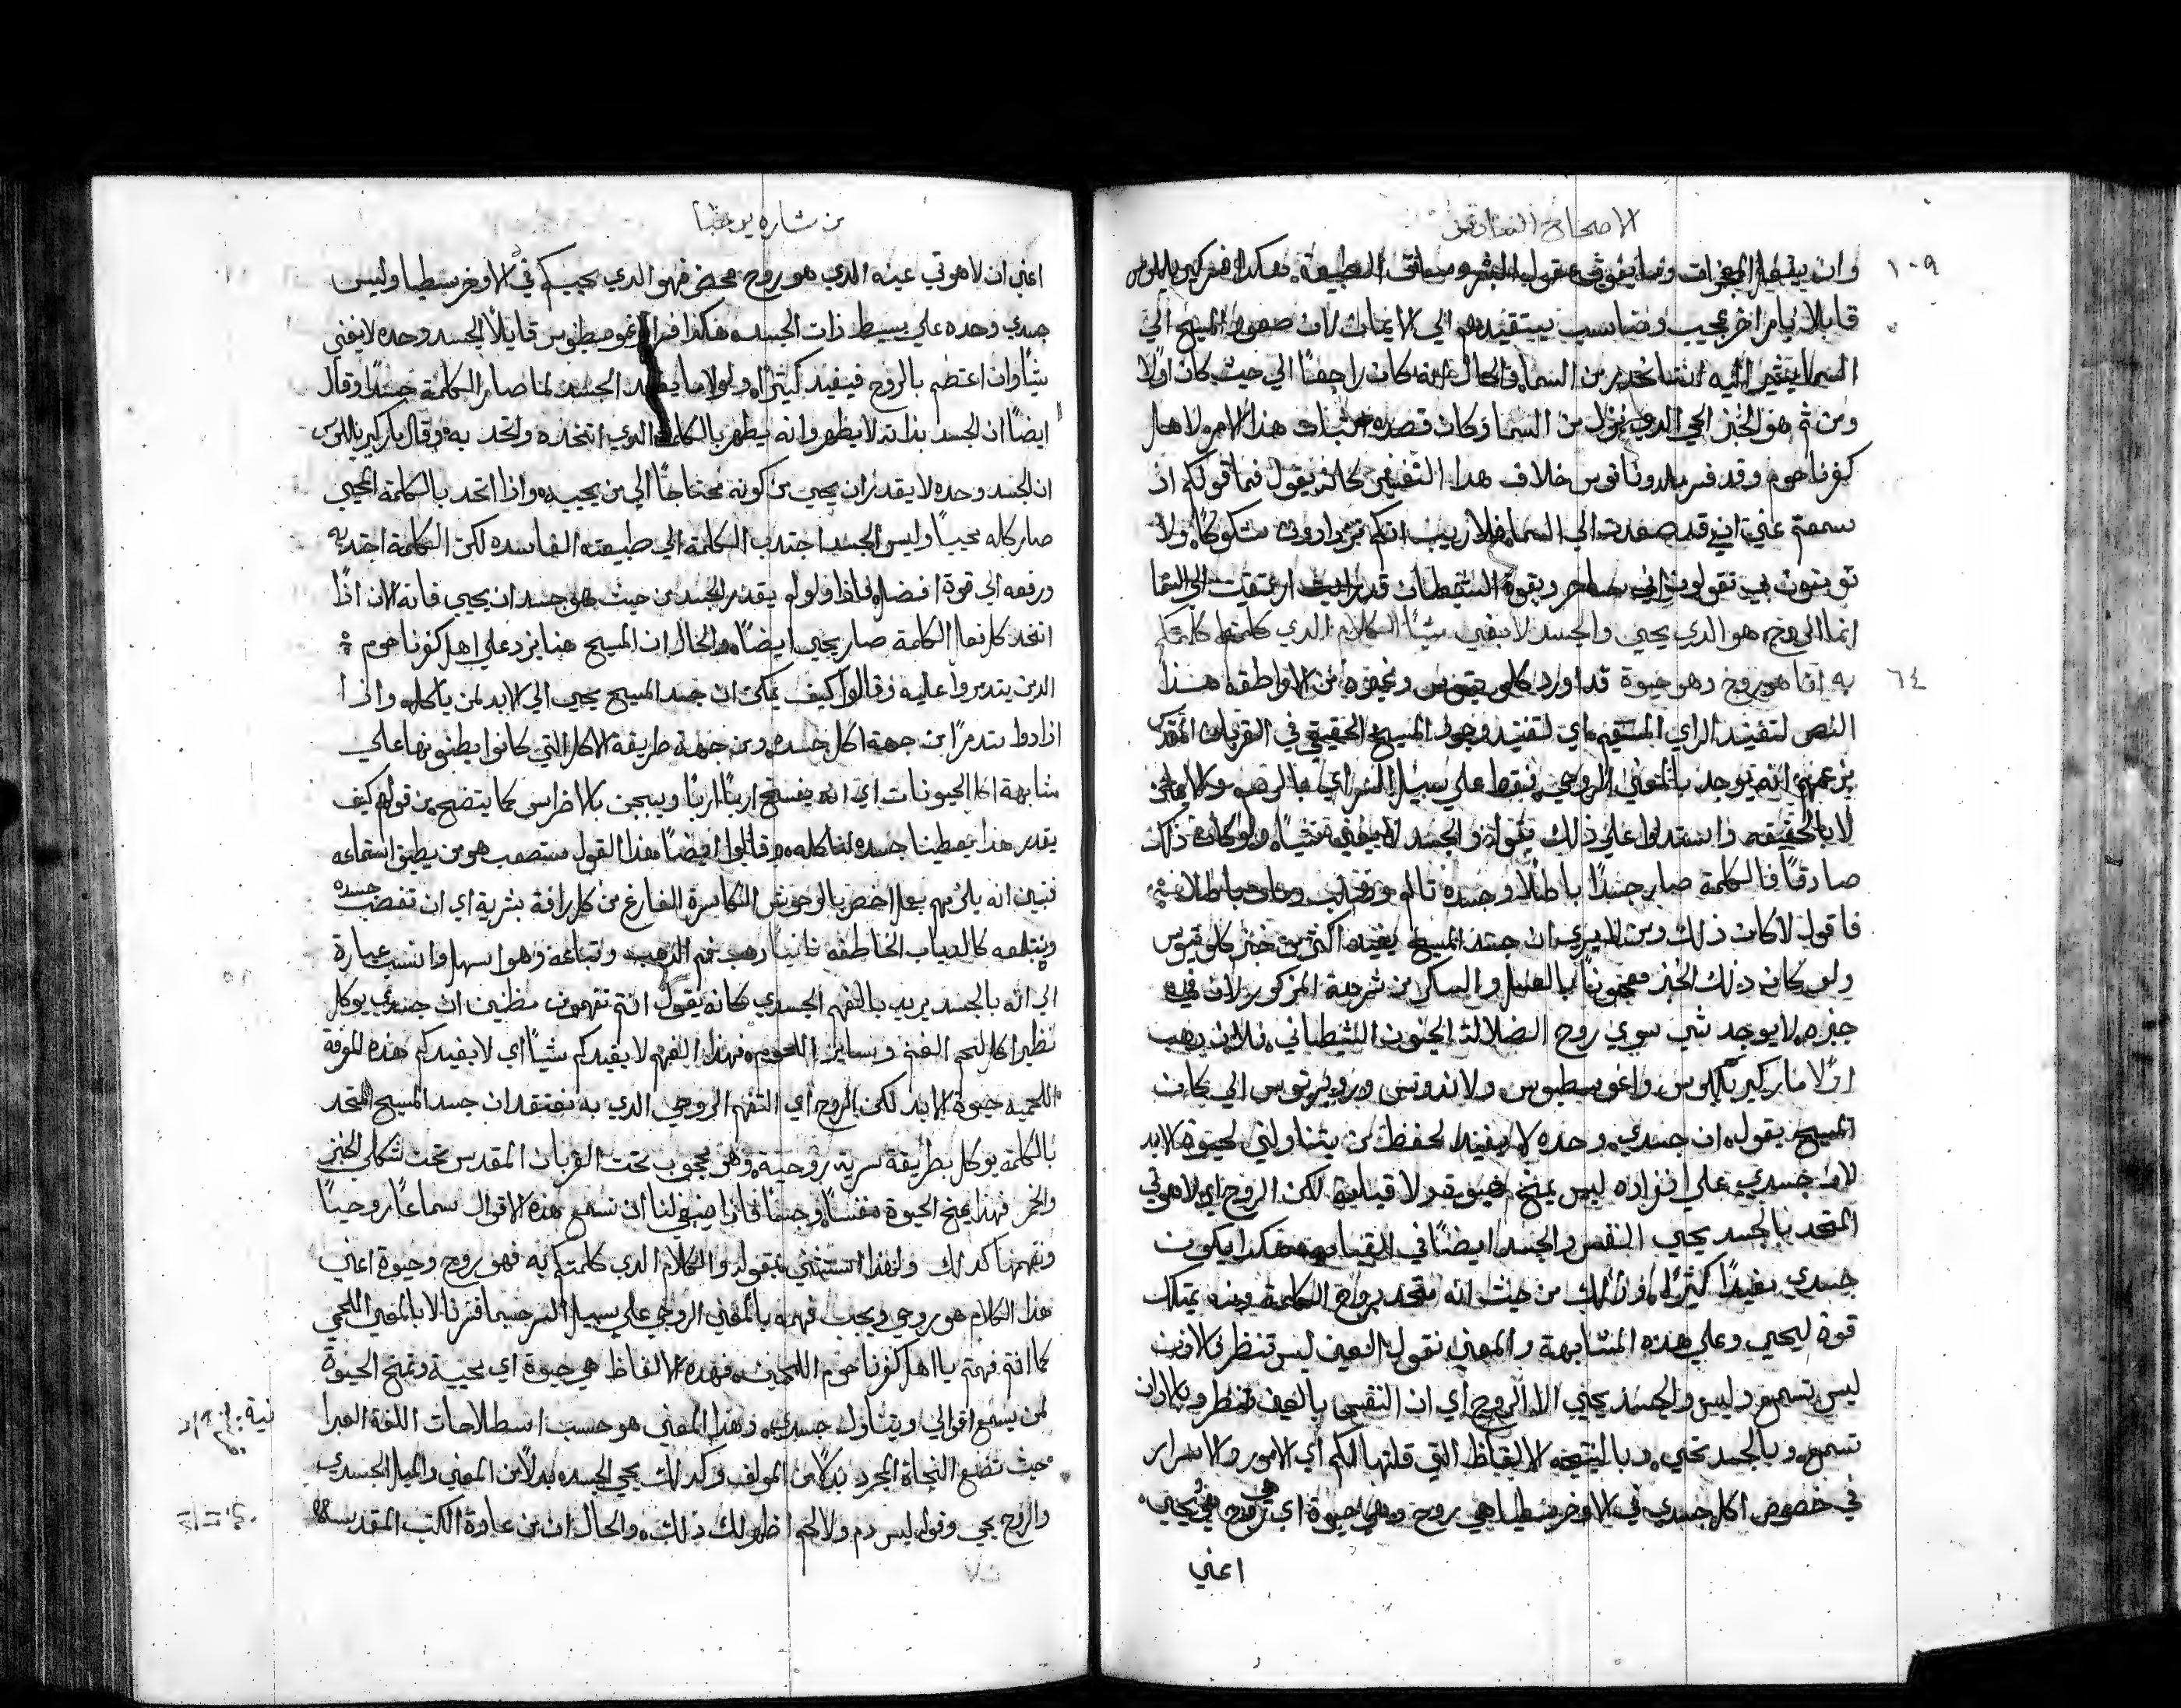 الاصحاح السادس
١٠٩
وان يفعل المعجزات وما يفوق عقول البشر وسياق الطبيعة هكذا فسر كيرياللوس
قايلا بامر اخر عجيب ومناسب يستقيدهم الي الايمان لان صعود المسيح الي
السما يشير اليه انه انحدر من السما والحال انه كان راجعًا الي حيث كان اولا
ومن ثم هو الخبز الحي الدي نزل من السما وكان قصده اثبات هذا الامر لاهل
كفرناحوم وقد فسر خلاف هدا التفسير كانه يقول فما قولكم اذ
سمعتم عني اني قد صعدت الي السما فلا ريب انكم تزدادون شكوكًا ولا
تومنون بي تقولون اني ساحر وبقوة الشيطان قد ارتقيت الي السما
٦٤
انما الروح هو الدي يحيي والجسد لا يغني شيًا الكلام الدي كلمتكم
به انما هو روح وهو حيوة قد اورد كلوينوس وغيره من الاراطقة هذا
النص لتفنيد الراي المستقيم اي لتفنيد وجود المسيح الحقيقي في القربان المقدس
بزعمهم انه يوجد بالمعني الروحي فقط علي سبيل السر اي بالرسم والايمان
لا بالحقيقة واستدلوا علي ذلك بقوله والجسد لا يغني شيئًا ولو كان ذلك
صادقًا فالكلمة صار جسدًا باطلًا وجسده تالم وصلب ومات باطلا
فاقول لا كان ذلك ومن لا يري ان جسد المسيح يفيد اكثر من خبز كلوينوس
ولو كان ذلك الخبز معجونًا بالعسل والسكر من شرحه المزكور لان في
خبزه لا يوجد شي سوي روح الضلالة الجنون الشيطاني فلان دهب
اولا مار كيرياللوس واغوسطينوس ولاندوسي وروبرتوس الي كان
المسيح يقول ان جسدي وحده لا يفيد لحفظ من يتناولني لحيوة الابد
لان جسدي علي انفراده ليس يمنح حيوة لكن الروح اي لاهوتي
المتحد بالجسد يحيي النفس والجسد ايضًا في القيامة هكذا يكون
جسدي مفيدًا كثيرًا وذلك من حيث انه متحد بروح الكلمة ومنه يمتلك
قوة ليحيي وعلي هذه المشابهة والمعني نقول العين ليس تنظر والادن
ليس تسمع وليس والجسد يحيي الا الروح اي ان النفس بالعين تنظر وبالادن
تسمع وبالجسد تحيي وبالنتيجة الالفاظ التي قلتها لكم اي الامور والاسرار
في خصوص اكل جسدي في الاوخرسطيا هي روح وهي حيوة اي هي روح يحيي
اعني
من بشارة يوحنا
اعني ان لاهوتي عينه الدي هو روح محض فهو الدي يحييكم في الاوخرسطيا وليس
جسدي وحده علي بسيط ذات الجسد هكذا فسر اغوسطينوس قايلًا الجسد وحده لا يغني
شيًا وان اعتضم بالروح فيفيد كثيرًا ولولا ما يفيد الجسد لما صار الكلمة جسدًا وقال
ايضًا ان الجسد بذاته لا يطهر وانه يطهر بالكلمة الدي اتخده واتحد به وقال مار كيرياللوس
ان الجسد وحده لا يقدر ان يحيي من كونه محتاجًا الي من يحييه واذا اتحد بالكلمة المحيي
صار كله محييًا وليس الجسد اجتدب الكلمة الي طبيعته الفاسده لكن الكلمة اجتدبه
ورفعه الي قوة افضل فاذا ولو لم يقدر الجسد من حيث هو جسد ان يحيي فانه الان اذًا
اتخد كل فعل الكلمة صار يحيي ايضًا والحال ان المسيح هنا يرد علي اهل كفرناحوم
الدين يتدمروا عليه وقالوا كيف يمكن ان جسد المسيح يحيي الي الابد لمن ياكله واذا
ازدادوا تدمرًا من جهة اكل جسده ومن جهة طريقة الاكل التي كانوا يظنونها علي
مشابهة اكل الحيونات اي انه يفسخ اربًا اربًا ويعجن بالاضراس كما يتضح من قولهم كيف
يقدر هذا يعطينا جسده لناكله وقالوا ايضًا هذا القول مستصعب هو من يطيق استماعه
فبين انه يلزمهم بعل اخص بالوحوش الكاسرة الفارغ من كل رافة بشرية اي ان تغصب جسده
وتبتلعه كالدياب الخاطفه ثانيًا دهب فم الدهب وتباعه وهو اسهل وانسب عبارة
الي انه بالجسد يريد بالفهم الجسدي كانه يقول انتم تفهمون مظنين ان جسدي يوكل
نظير اكل لحم الغنم وساير اللحوم فهذا الفهم لا يفيدكم شيئًا اي لا يفيدكم هذه المعرفة
اللحمية حيوة الابد لكن الروح اي التفهم الروحي الدي به نعتقد ان جسد المسيح المتحد
بالكلمة يوكل بطريقة سرية روحية وهو محجوب تحت القربان المقدس تحت شكلي الخبز
والخمر فهذا يمنح الحيوة نفسًا وجسدًا فاذا ينبغي لنا ان نسمع هذه الاقوال سماعًا روحيًا
ونفهمها كدلك ولهذا استثني بقوله والكلام الدي كلمتكم به فهو روح وحيوة اعني
هذا الكلام هو روحي ويجب فهمه بالمعني الروحي علي سبيل السر حسبما فسرنا لا بالمعني اللحمي
كما انتم فهمتم يا اهل كفرناحوم اللحميين فهده الالفاظ هي حيوة اي محيية وتمنح الحيوة
لمن يسمع اقوالي ويتناول جسدي وهذا المعني هو حسب اسطلاحات اللغة العبرا
حيث تضع النجاة المجرد بدلًا من المولف وكدلك يجي الجسد بدلًا من المعني والميل الجسدي
والروح يحيي وقوله ليس دم ولا لحم اظهر لك ذلك والحال ان من عادة الكتب المقدسه